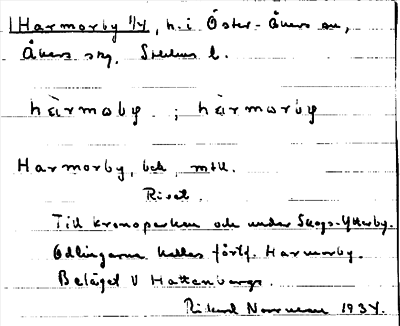 Harmorby 1/4, h. i Öster-Åkers sn,
Åkers skg, Sthlms l.
hàrmoby . ; hàrmorby
Harmorby, och, mtl.
Rivet.
Till kronoparken och under Skogs-Ytterby.
Odlingarna kallas fortf. Harmorby.
Beläget V Hattenberge.
Rikard 1934.